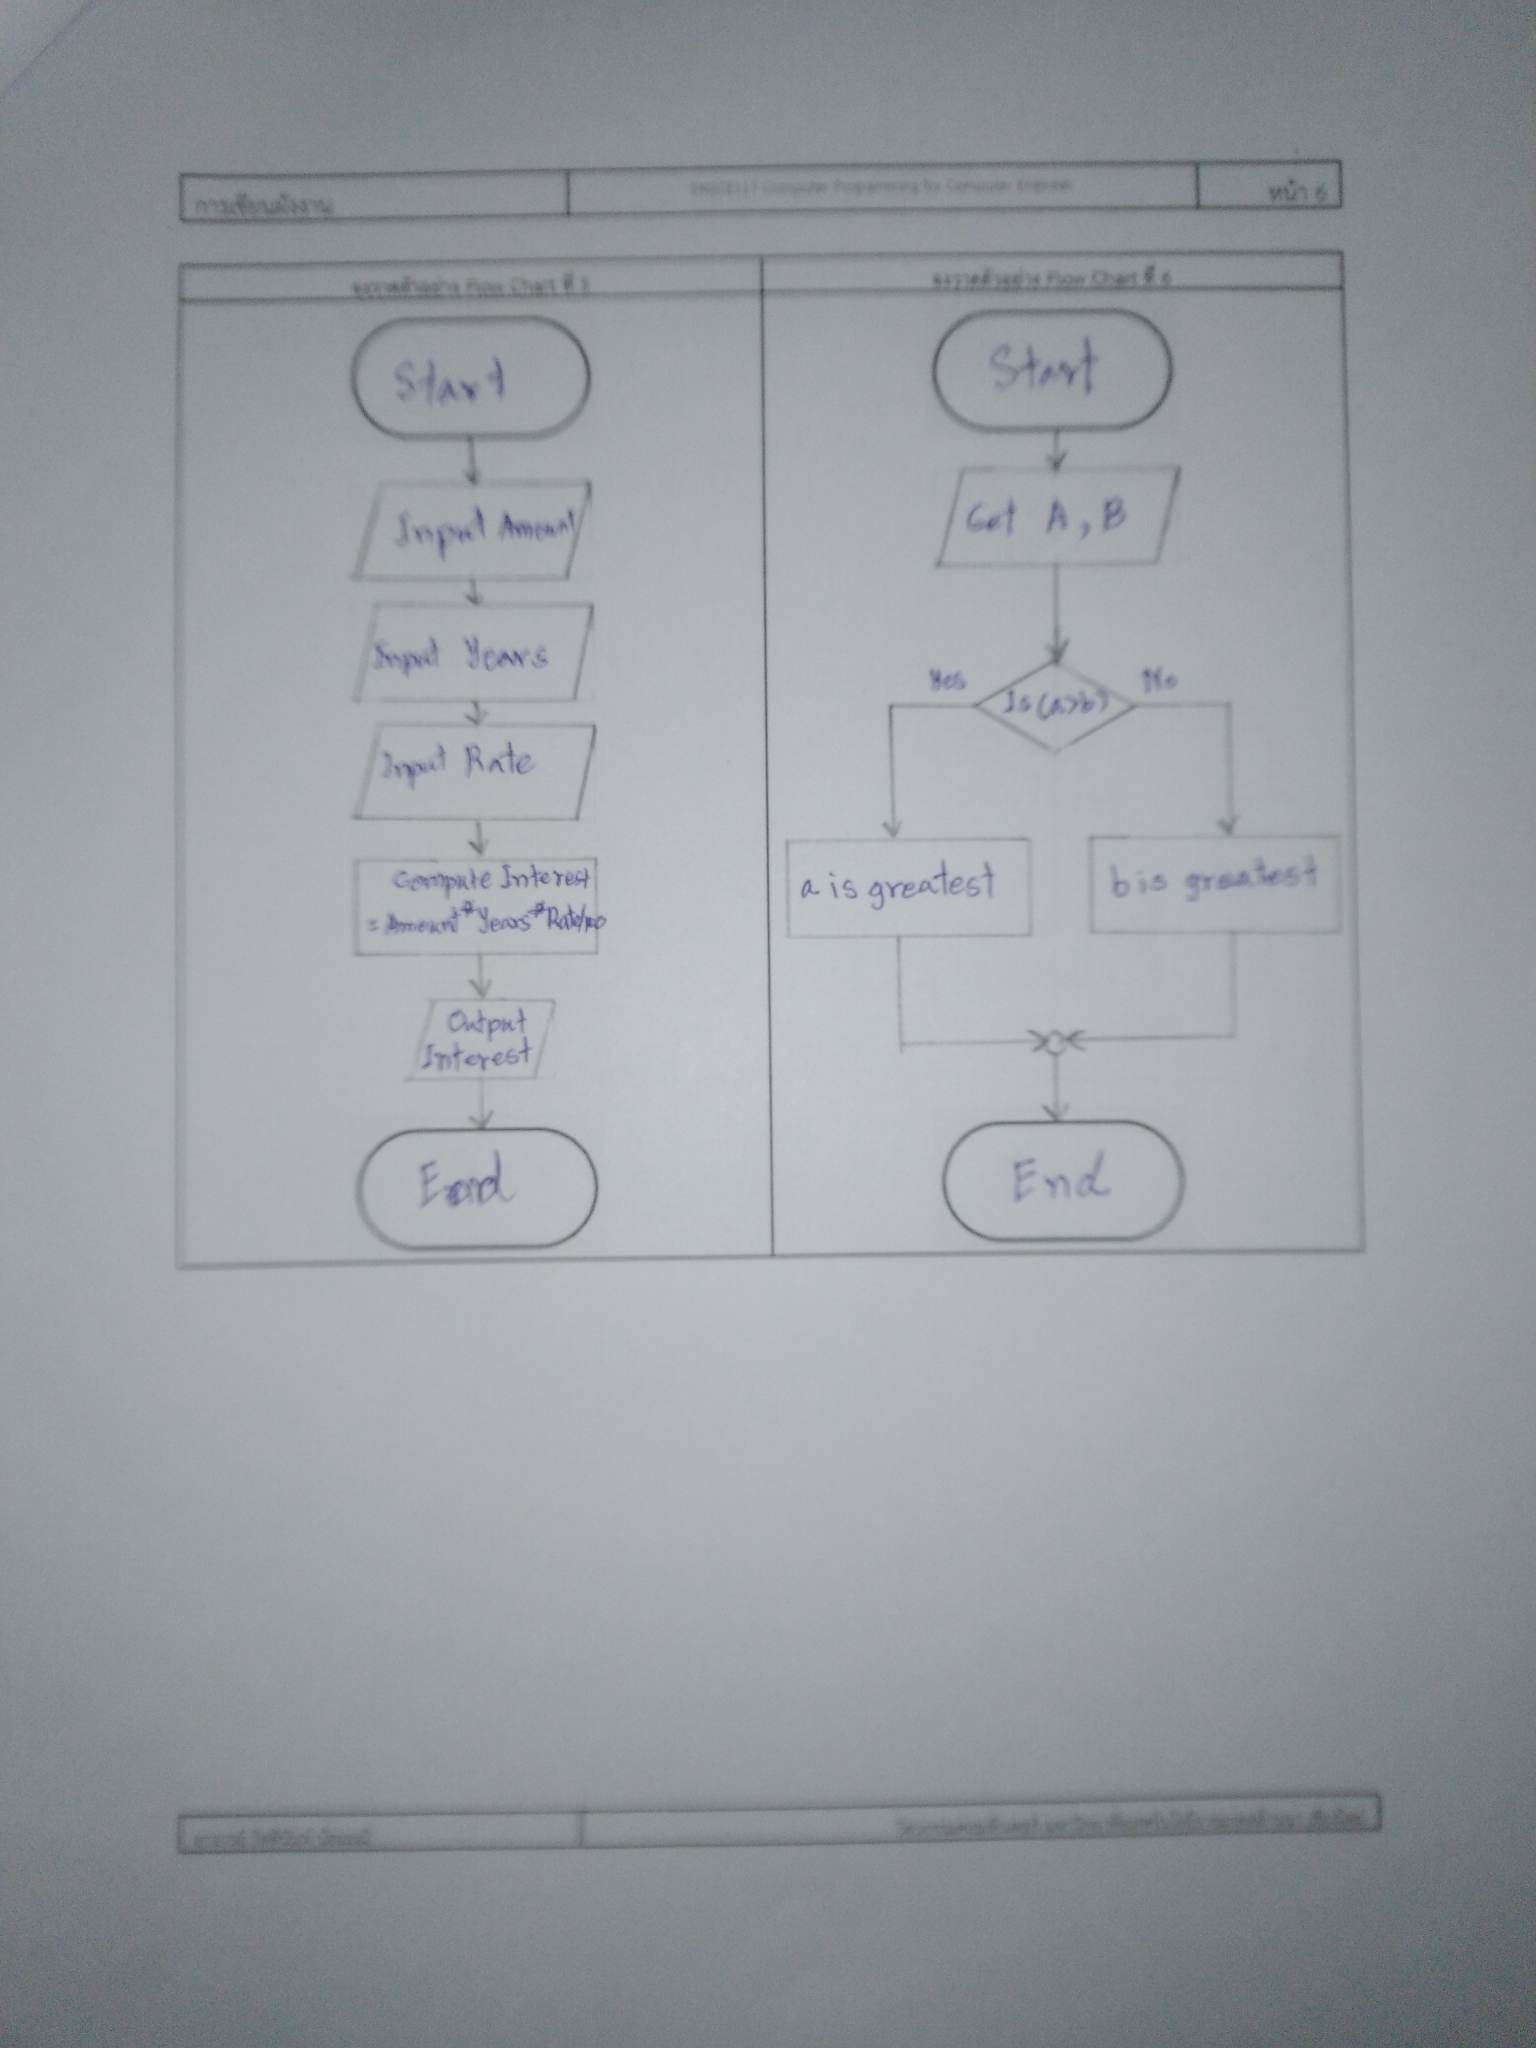 การเขียนผังงาน
Computer Programming for Computer Engineer
หน้า 6
Flow Chart ที่
Start
Input Amount
Input Years
Input Rate
Compute Interest
= Amount * Years * Rate/100
Output
Interest
End
Flow Chart ที่ 6
Start
Get A, B
Yes
Is (a>b)
No
a is greatest
b is greatest
End